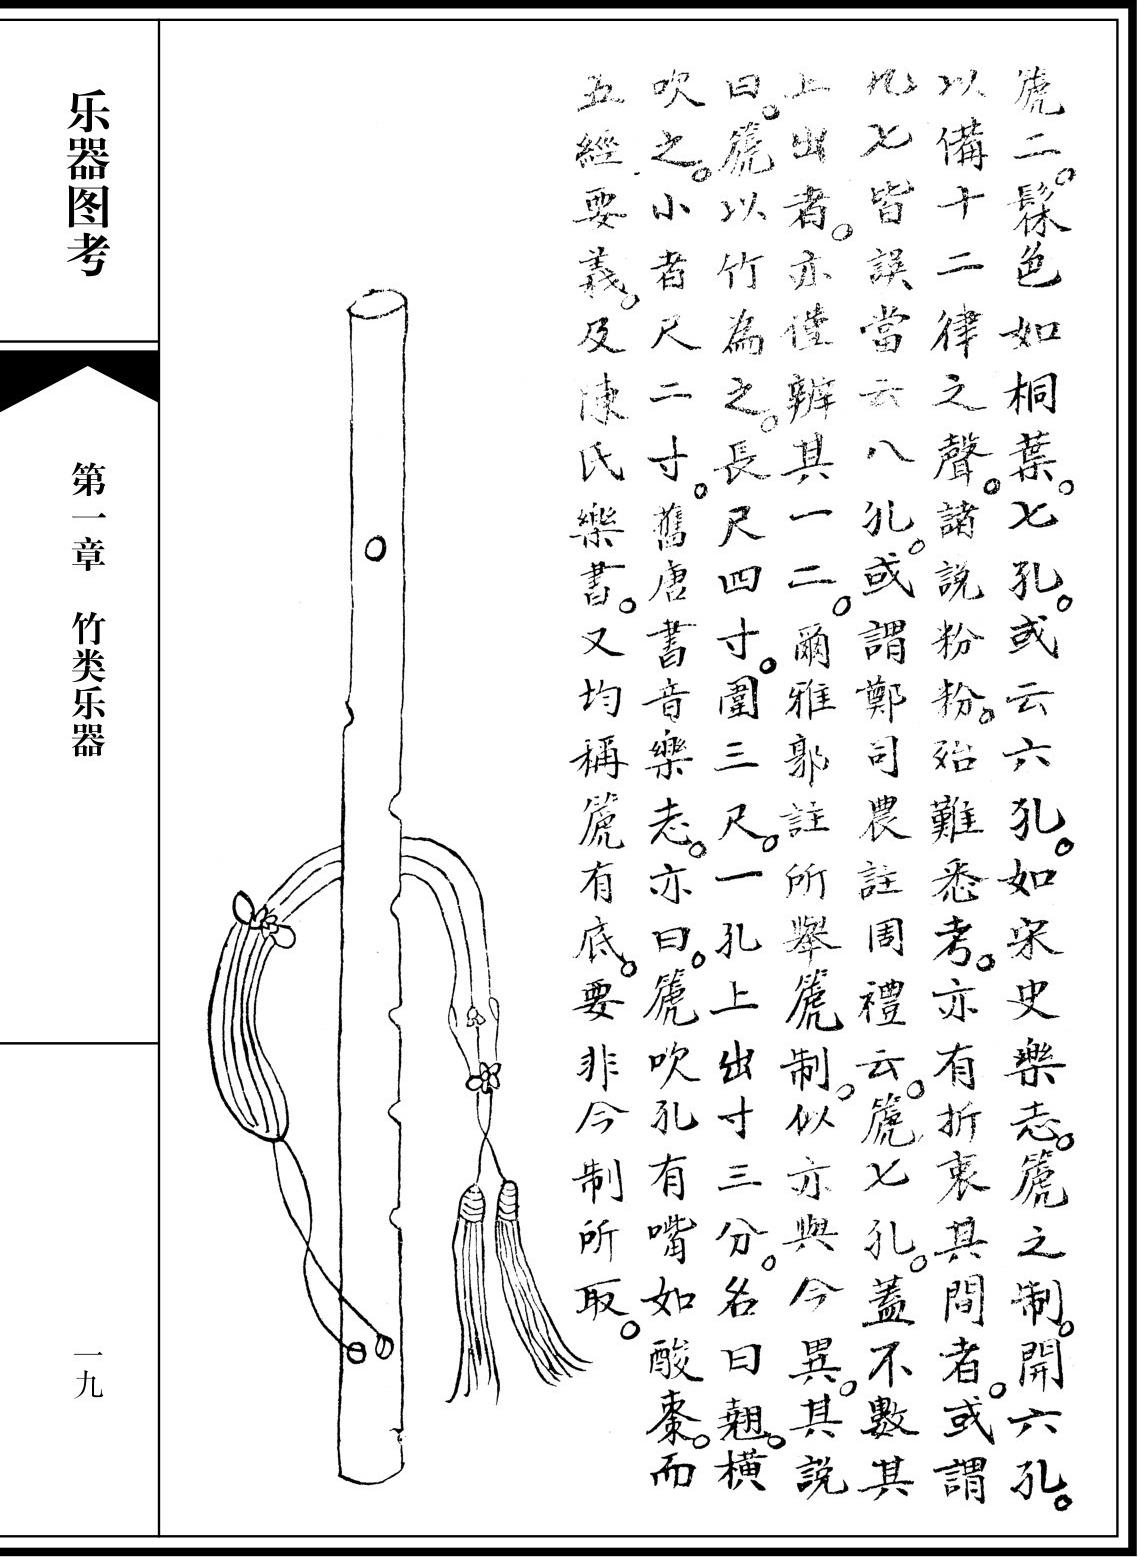 箎二。髹色如桐葉。七孔。或云六孔。如宋史樂志。箎之制。開六孔。
以備十二律之聲。諸說粉粉。殆難悉考。亦有折衷其間者。或謂
九七皆誤當云八孔。或謂鄭司農註周禮云。箎七孔。蓋不數其
上出者。亦僅辦其一二。爾雅郭註所舉箎制。似亦與今異。其說
曰。箎以竹為之。長尺四寸。圍三尺。一孔上出寸三分。名曰翹。橫
吹之。小者尺二寸。舊唐書音樂志。亦曰。箎吹孔有嘴如酸棗。而
五經要義。及陳氏樂書。又均稱箎有底。要非今制所取。
乐器图考
第一章 竹类乐器
一九